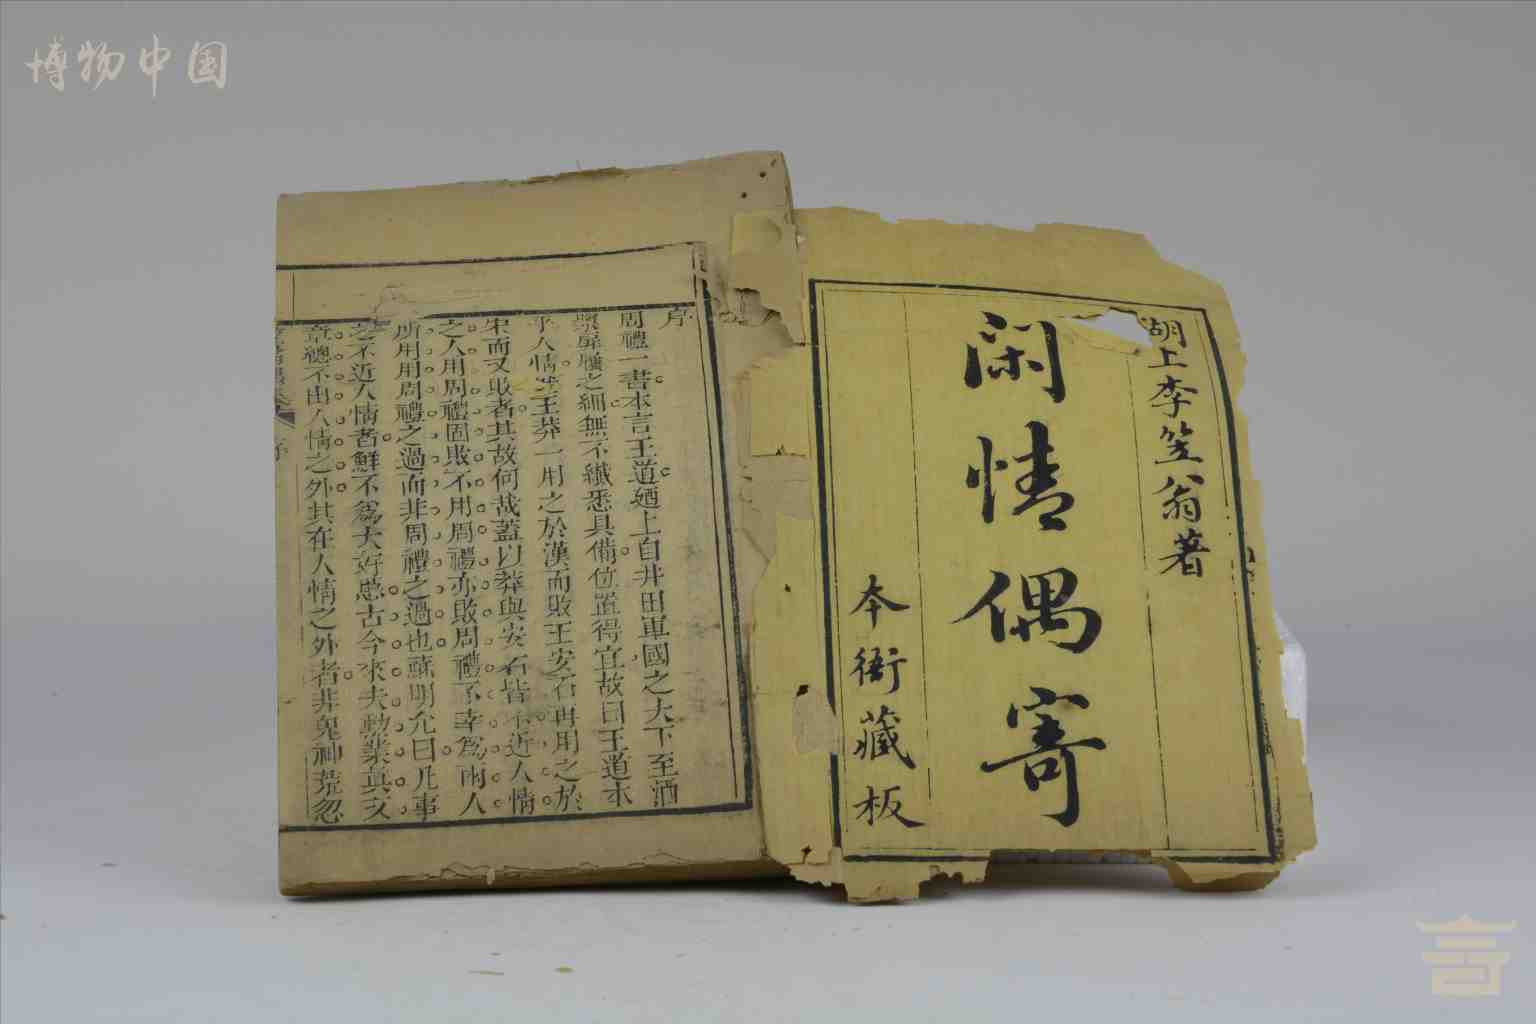 博物中国
湖上李笠翁著
閑情偶寄
本衙藏板
序
周禮一書本言王道廼上自井田軍國之大下至酒
漿屝屨之細無不纖悉具備位置得宜故曰王道本
乎人情然王莽一用之於漢而敗王安石再用之於
宋而又敗者其故何哉蓋以莽與安石皆不近人情
之人用周禮固敗不用周禮亦敗周禮不幸為兩人
所用用周禮之過而非周禮之過也蘇明允曰凡事
之不近人情者鮮不為大奸慝古今來大勳業真文
章總不由人情之外其在人情之外者非鬼神荒忽
序